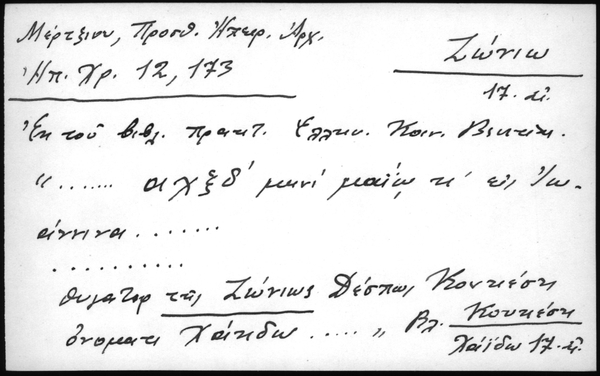 Μέρτζιου, Προσθ. Ηπειρ. Αρχ.
Ηπ. Χρ. 12, 173
Ζώνιω
17. αἰ.
Ἐκ τοῦ βιβλ. πρακτ. Ἑλλην. Κοιν. Βενετίας.
"....... αχξδ' μηνί μαΐῳ κ' εἰς Ἰω-
άννινα.......
..........
θυγατέρ τῆς Ζώνιως Δέσπως Κουκέση
ὀνόματι Χάηδω ..... "
Βλ. Κουκέση
Χάϊδω 17. αἰ.